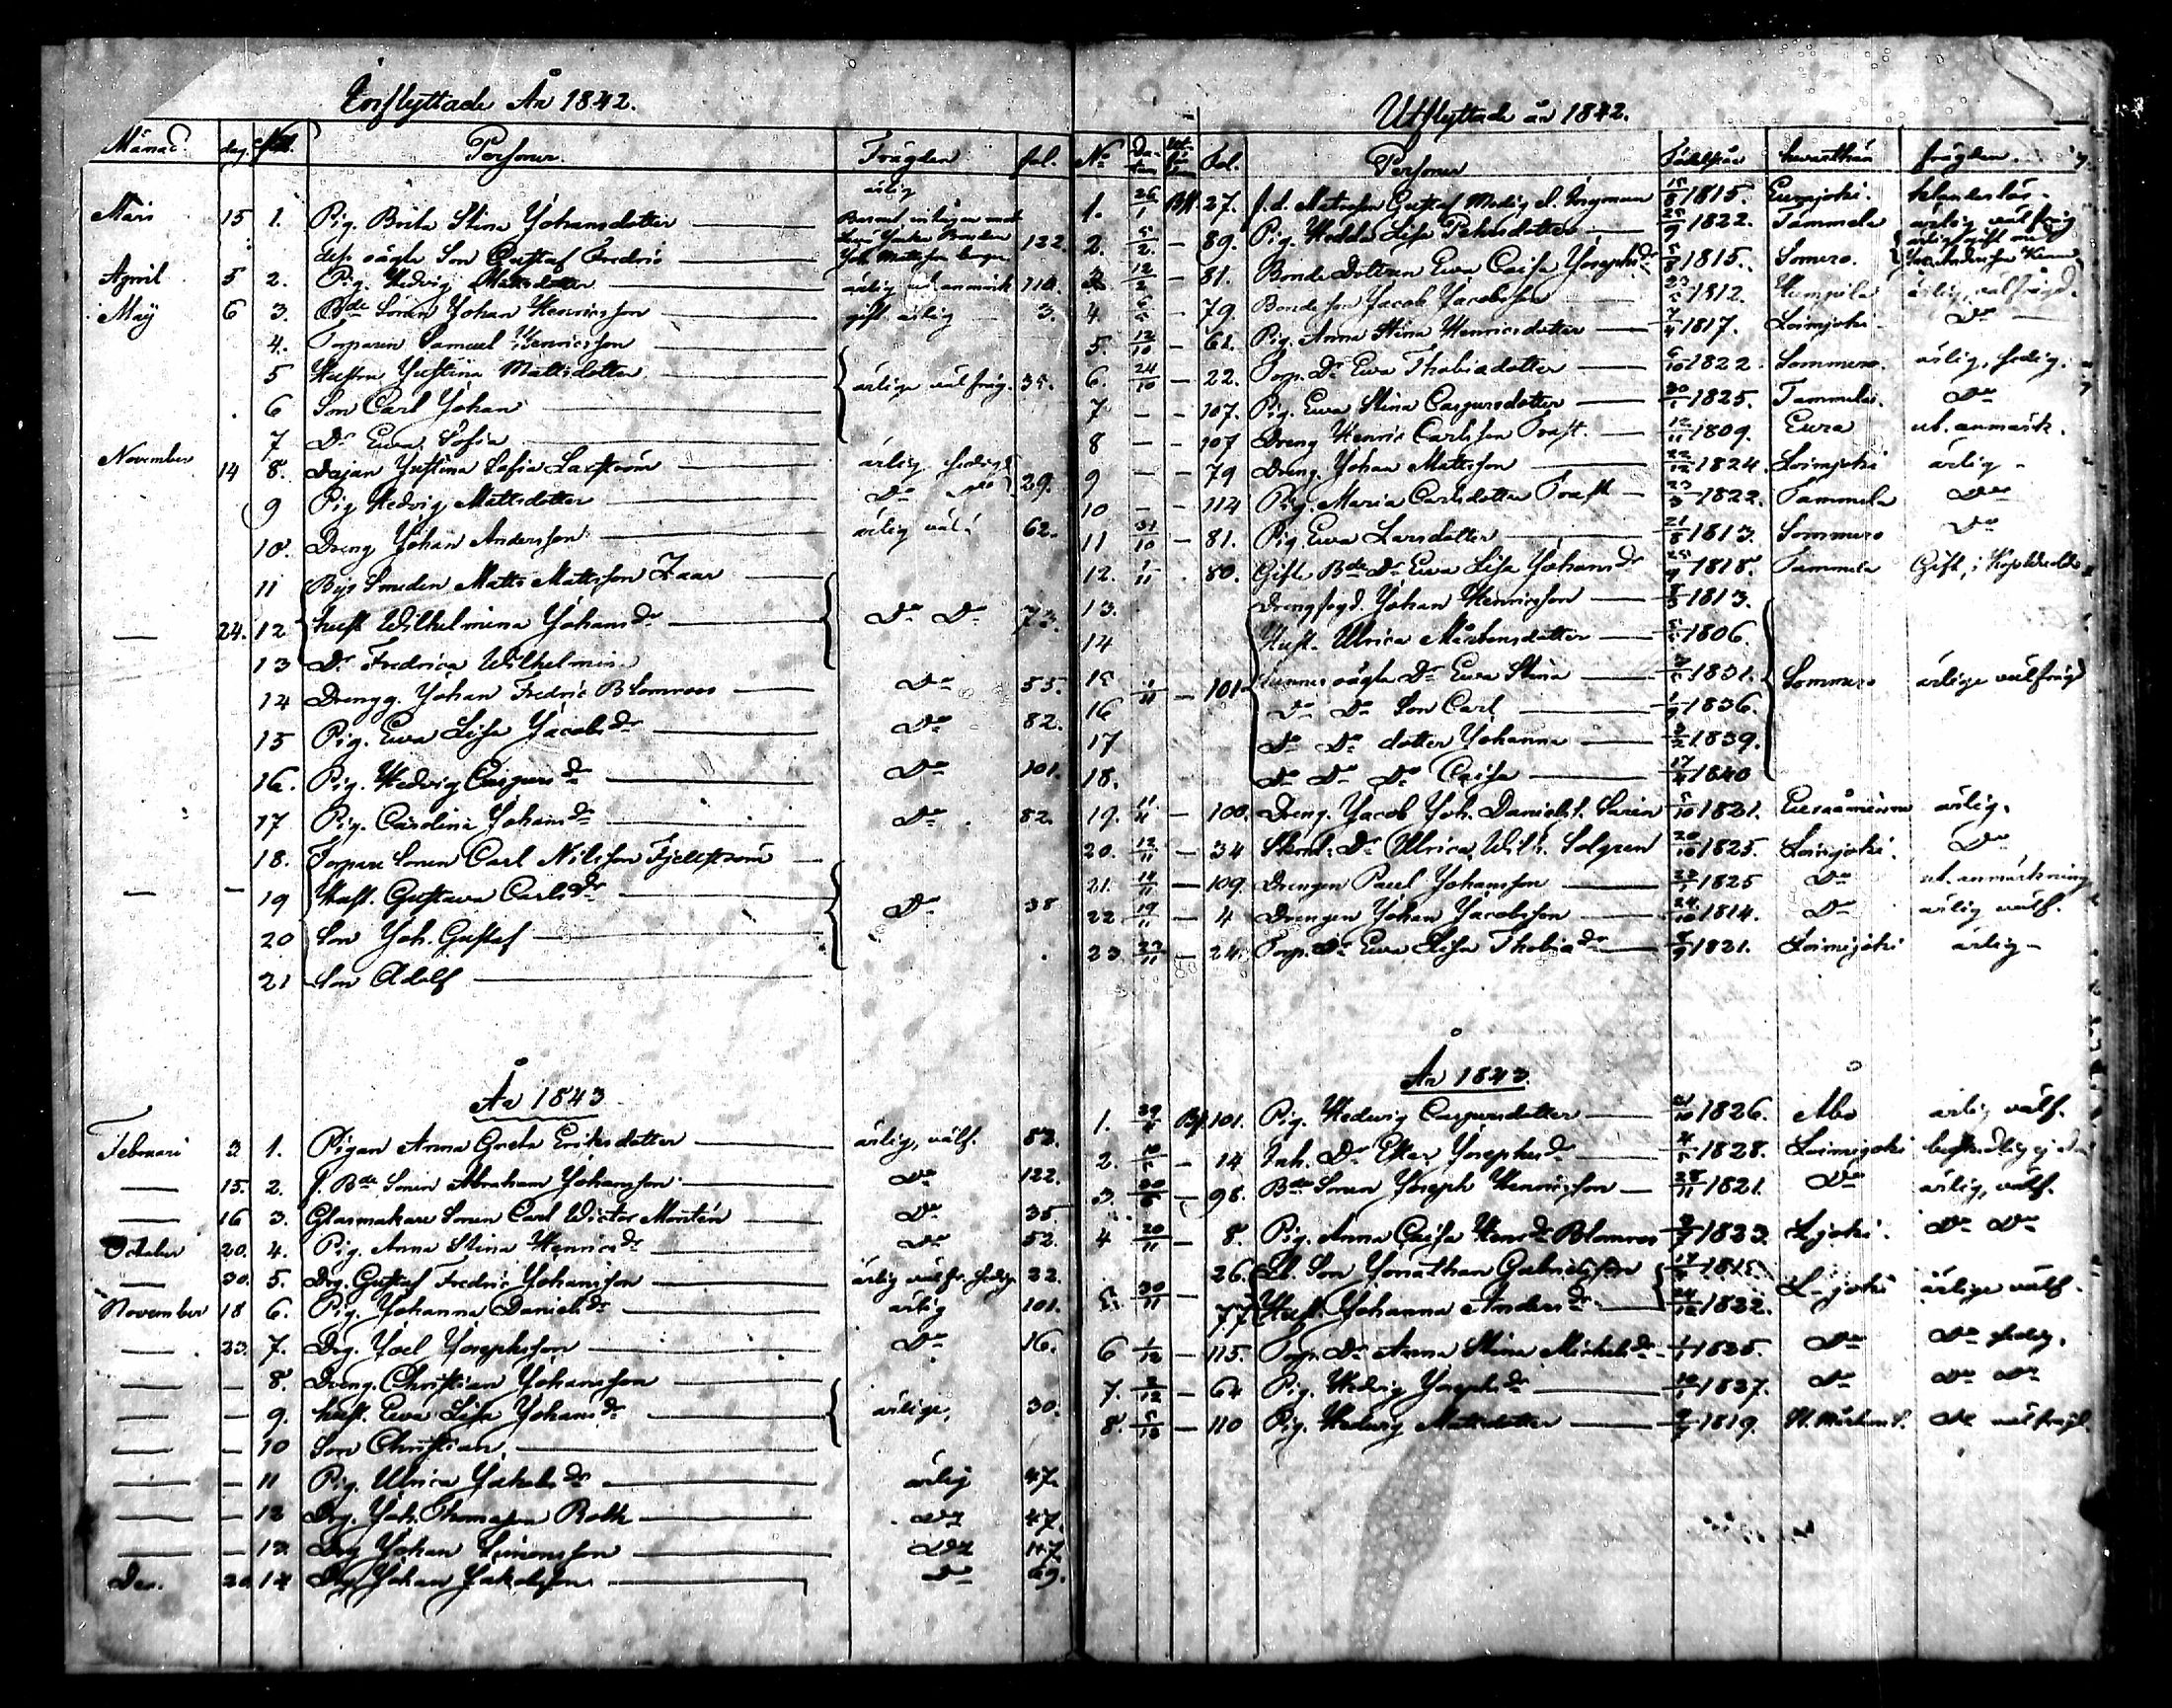 Inflyttade År 1842.
Månad dag. No. Personer Frägden fol.
Mars 15 1. Pig. Brita Stina Johansdotter ärlig
dess oägta Son Gustaf Fredric 122.
April 5 2. Pig. Hedvig Mattsdotter 110.
Maij 6 3. Bde Sonen Johan Henricsson gift ärlig 3.
4. Torparen Samuel Henricsson
5 Hustru Justina Mattsdotter ärlige välfräg. 35.
6 Son Carl Johan
7 Dr Ewa Sofia
November 14 8. Dejan Justina Sofia Lastrøm ärlig ledig 29.
9 Pig Hedvig Mattsdotter Do
10. Dreng Johan Andersson ärlig väl 62.
11 Bys Smeden Matts Mattsson Zaar
— 24. 12 hust Wilhelmina Johansdr Do Do 73.
13 Dr Fredrica Wilhelmina
14 Drengg. Johan Fredric Blomroos Do 55.
15 Pig. Ewa Lisa Jacobsdr Do 82.
16. Pig. Hedvig Caspersdr Do 101.
17 Pig. Carolina Johansdr Do 82.
18. Torpare Sonen Carl Nilsson Fjellström
— — 19 Hust. Gustava Carlsdr Do 38
20 Son Joh. Gustaf
21 Son Adolf
År 1843
Februari 2 1. Pigan Anna Greta Eriksdotter ärlig, välf. 52.
— 15. 2. f. Bde Sonen Abraham Johansson Do 122.
— 16 3. Glasmakare Sonen Carl Wictor Montén Do 35.
October 20. 4. Pig. Anna Stina Henricsdr Do 52.
— 30. 5. Drg. Gustaf Fredric Johansson ärlig välfr. ledig 22.
November 18 6. Pig. Johanna Danielsdr ärlig 101.
— 23. 7. Drg. Joel Josephsson Do 16.
— — 8. Dreng. Christian Johansson
— — 9. hust. Ewa Lisa Johansdr ärlige, 30.
— — 10 Son Christian
— — 11 Pig. Ulrica Jakobsdr ärlig 47.
— — 12 Drg. Joh. Thomasson Roth Do 47.
— — 13 Drg Johan Simonsson Do 147.
Dec. 20 14 Drg Johan Jakobsson Do 69.
Utflyttade år 1842.
No Datum Fol. Personer Födelseår hwarthän frägden.
1. 26/1 27. f.d. Matrosen Gustaf 15/8 1815. Eurajoki.
2. 5/2. — 89. Pig. Hedda Lisa 25/9 1822. Tammela ärlig välfräg
3. 12/2 — 81. Bonde Dottren Ewa Caisa Josephsdr 1815. Somero.
4. 6/5 — 79. Bonde Son Jacob Jacobsson 23/5 1812. Humpila ärlig, välfrägd.
5. 12/10 — 62. Pig. Anna Stina Henricsdotter 7/4 1817. Loimjoki Do
6. 24/10 — 22. Torp. Dr Ewa Thobiadotter 6/10 1822. Sommero. ärlig, ledig.
7 — — 107. Pig. Ewa Stina Caspersdotter 1825. Tammela. Do
8 — — 107 Dreng Henric Carlsson Trast. 12/11 1809. Eura ut. anmärk.
9 — — 79 Dreng. Johan Mattsson 22/12 1824. Loimjoki ärlig
10 — — 114 Pig. Maria Carlsdotter Trast 23/3 1822. Tammela Do
11 31/10 — 81. Pig. Ewa Larsdotter 21/8 1813. Sommero Do
12. 1/11 80. Gifte Bde Dr Ewa Lisa Johansdr 25/9 1818. Tammela Gift,
13. Drengfogd. Johan Henricsson 1813.
14 Hust. Ulrica Mårtensdotter 1806.
15 1/11 — 101 hennes oägta Dr Ewa Stina 1831. Sommero ärlige välfrägd
16 Do Do Son Carl 1836.
17 Do Do dotter Johanna 1839.
18. Do Do Do Caisa 1840
19. 11/11 — 100. Dreng. Jacob Joh. Daniels. Sarin 5/10 1821. Euraåminne ärlig.
20. 12/11 — 34 Dr Ulrica Wilh. Solgren 20/10 1825. Loimjoki. Do
21. 14/11 — 109. Drengen Paul Johansson 1825 Do ut. anmärkning
22 19/11 — 4 Drengen Johan Jacobsson 24/10 1814. Do ärlig välf.
23 22/11 — 24. Torp. Dr Ewa Lisa Thobiadr 1821. Loimijoki ärlig
År 1843.
1. 101. Pig. Hedwig Caspersdotter 1826. Åbo ärlig välf.
2. — 14 Inh. Dr Ester Josephsdr 1828. Loimijoki
3. — 98. Bde Sonen Joseph Henricsson 28/11 1821. Do ärlig, välf.
4 20/11 — 8. Pig. Anna Caisa Hensdr Blomroos 1823. Ljoki. Do Do
26. Son Jonathan Gabrielsson 1815.
5. 30/11 — 77 Hust. Johanna Andersdr 24/12 1822. L-joki ärlige välf.
6 1/12 — 115. Torp. Dr Anna Stina Michelsdr 1825. Do Do ledig.
7. 2/12 — 64 Pig. Hedvig Josephsdr 1827. Do Do Do
8. 5/12 — 110 Pig. Hedwig Mattsdotter 1819. Do välfrägd.